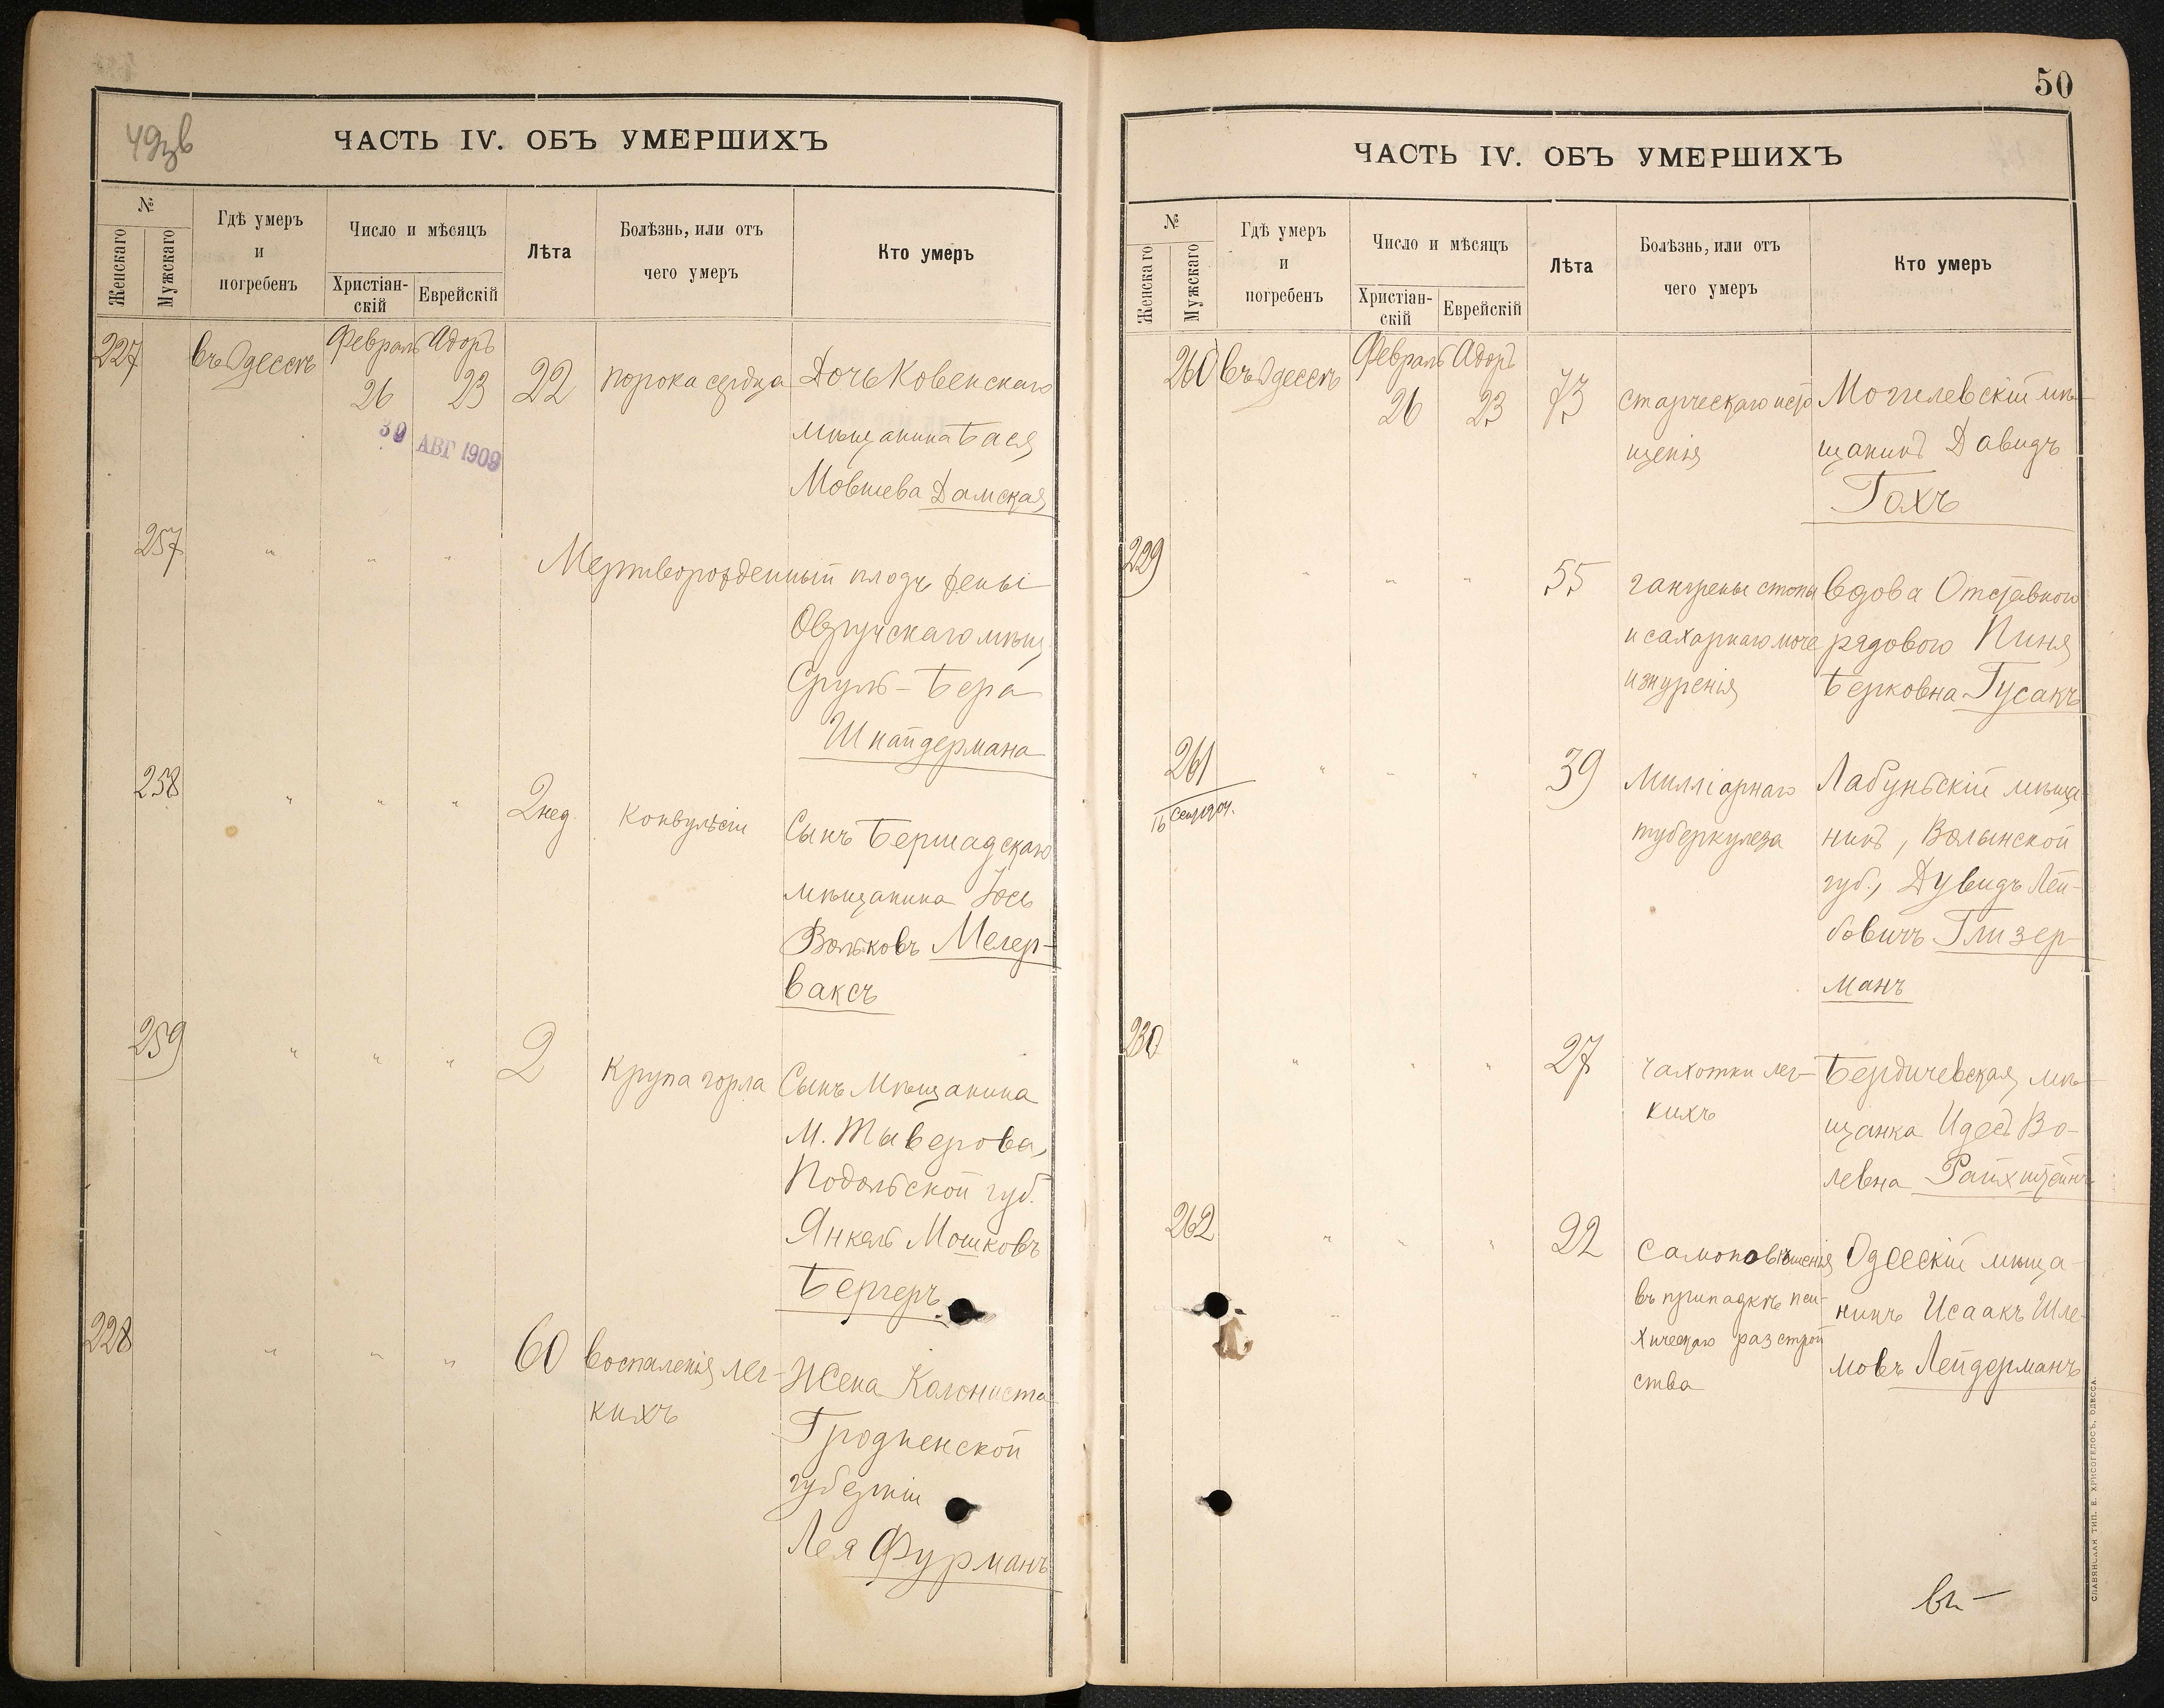 49зв
ЧАСТЬ IV. ОБЪ УМЕРШИХЪ
№
Женскаго
Мужскаго
Гдѣ умеръ
и
погребенъ
Число и мѣсяцъ
Христіан-
скій
Еврейскій
Лѣта
Болѣзнь, или отъ
чего умеръ
Кто умеръ
227 въ Одессѣ Февраль Адоръ
26 23 22 порока сердца Дочь Ковенскаго
мѣщанина Бася
Мовшева Дамская
30 АВГ 1909
257 " " " Мертворожденный плодъ жены
Овручскаго мѣщ.
Сруль-Бера
Шнайдермана
258 " " " 2 нед. Конвульсіи Сынъ Бершадскаго
мѣщанина Іось
Вольковъ Меер-
ваксъ
259 " " " 2 Крупа горла Сынъ Мѣщанина
М. Тыверова,
Подольской губ.
Янкель Мошковъ
Бергеръ
228 " " " 60 воспаленія лег-
кихъ
Жена Колониста
Гродненской
губерніи
Лея Фурманъ
50
ЧАСТЬ IV. ОБЪ УМЕРШИХЪ
№
Женскаго
Мужскаго
Гдѣ умеръ
и
погребенъ
Число и мѣсяцъ
Христіан-
скій
Еврейскій
Лѣта
Болѣзнь, или отъ
чего умеръ
Кто умеръ
260 въ Одессѣ Февраль Адоръ
26 23 73 старческаго исто
щенія
Могилевскій мѣ-
щанинъ Давидъ
Гохъ
229 " " " 55 гангрены стопы
и сахарнаго моче
изнуренія
вдова Отставного
рядового Пиня
Берковна Гусакъ
261 " " " 39 Милліарнаго
туберкулеза
Лабуньскій мѣща
нинъ, Волынской
губ., Дувидъ Лей-
бовичъ Глизер-
манъ
230 " " " 27 чахотки лег-
кихъ
Бердичевская мѣ-
щанка Идесъ Во-
левна Райхштейнъ
262 " " " 22 Самоповѣшенія
въ припадкѣ пси-
хическаго разстрой
ства
Одесскій мѣща-
нинъ Исаакъ Шле-
мовъ Лейдерманъ
СЛАВЯНСКАЯ ТИП. Е. ХРИСОГЕЛОСЪ, ОДЕССА.